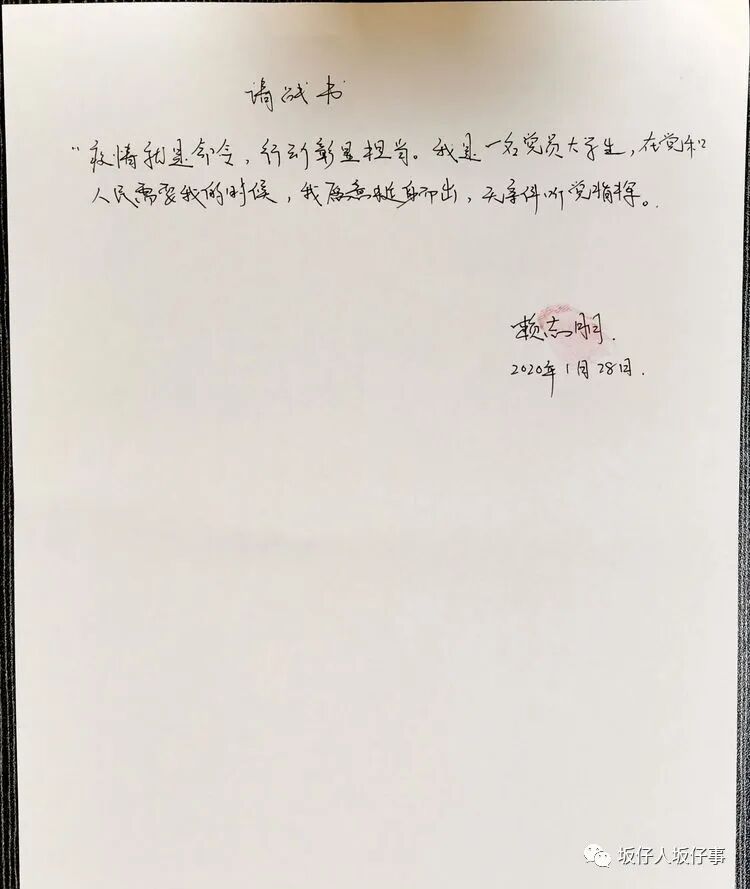 请战书
"疫情就是命令，行动彰显担当。我是一名党员大学生，在党和
人民需要我的时候，我愿意挺身而出，无条件听党指挥。
赖志明.
2020年1月28日.
坂仔人坂仔事